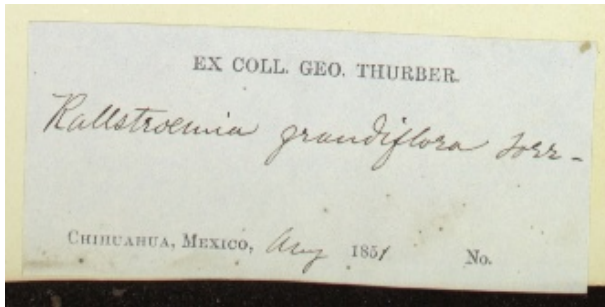 EX COLL. GEO. THURBER.
Kallstroemia grandiflora Torr-
CHIHUAHUA, MEXICO, Aug 1851 No.